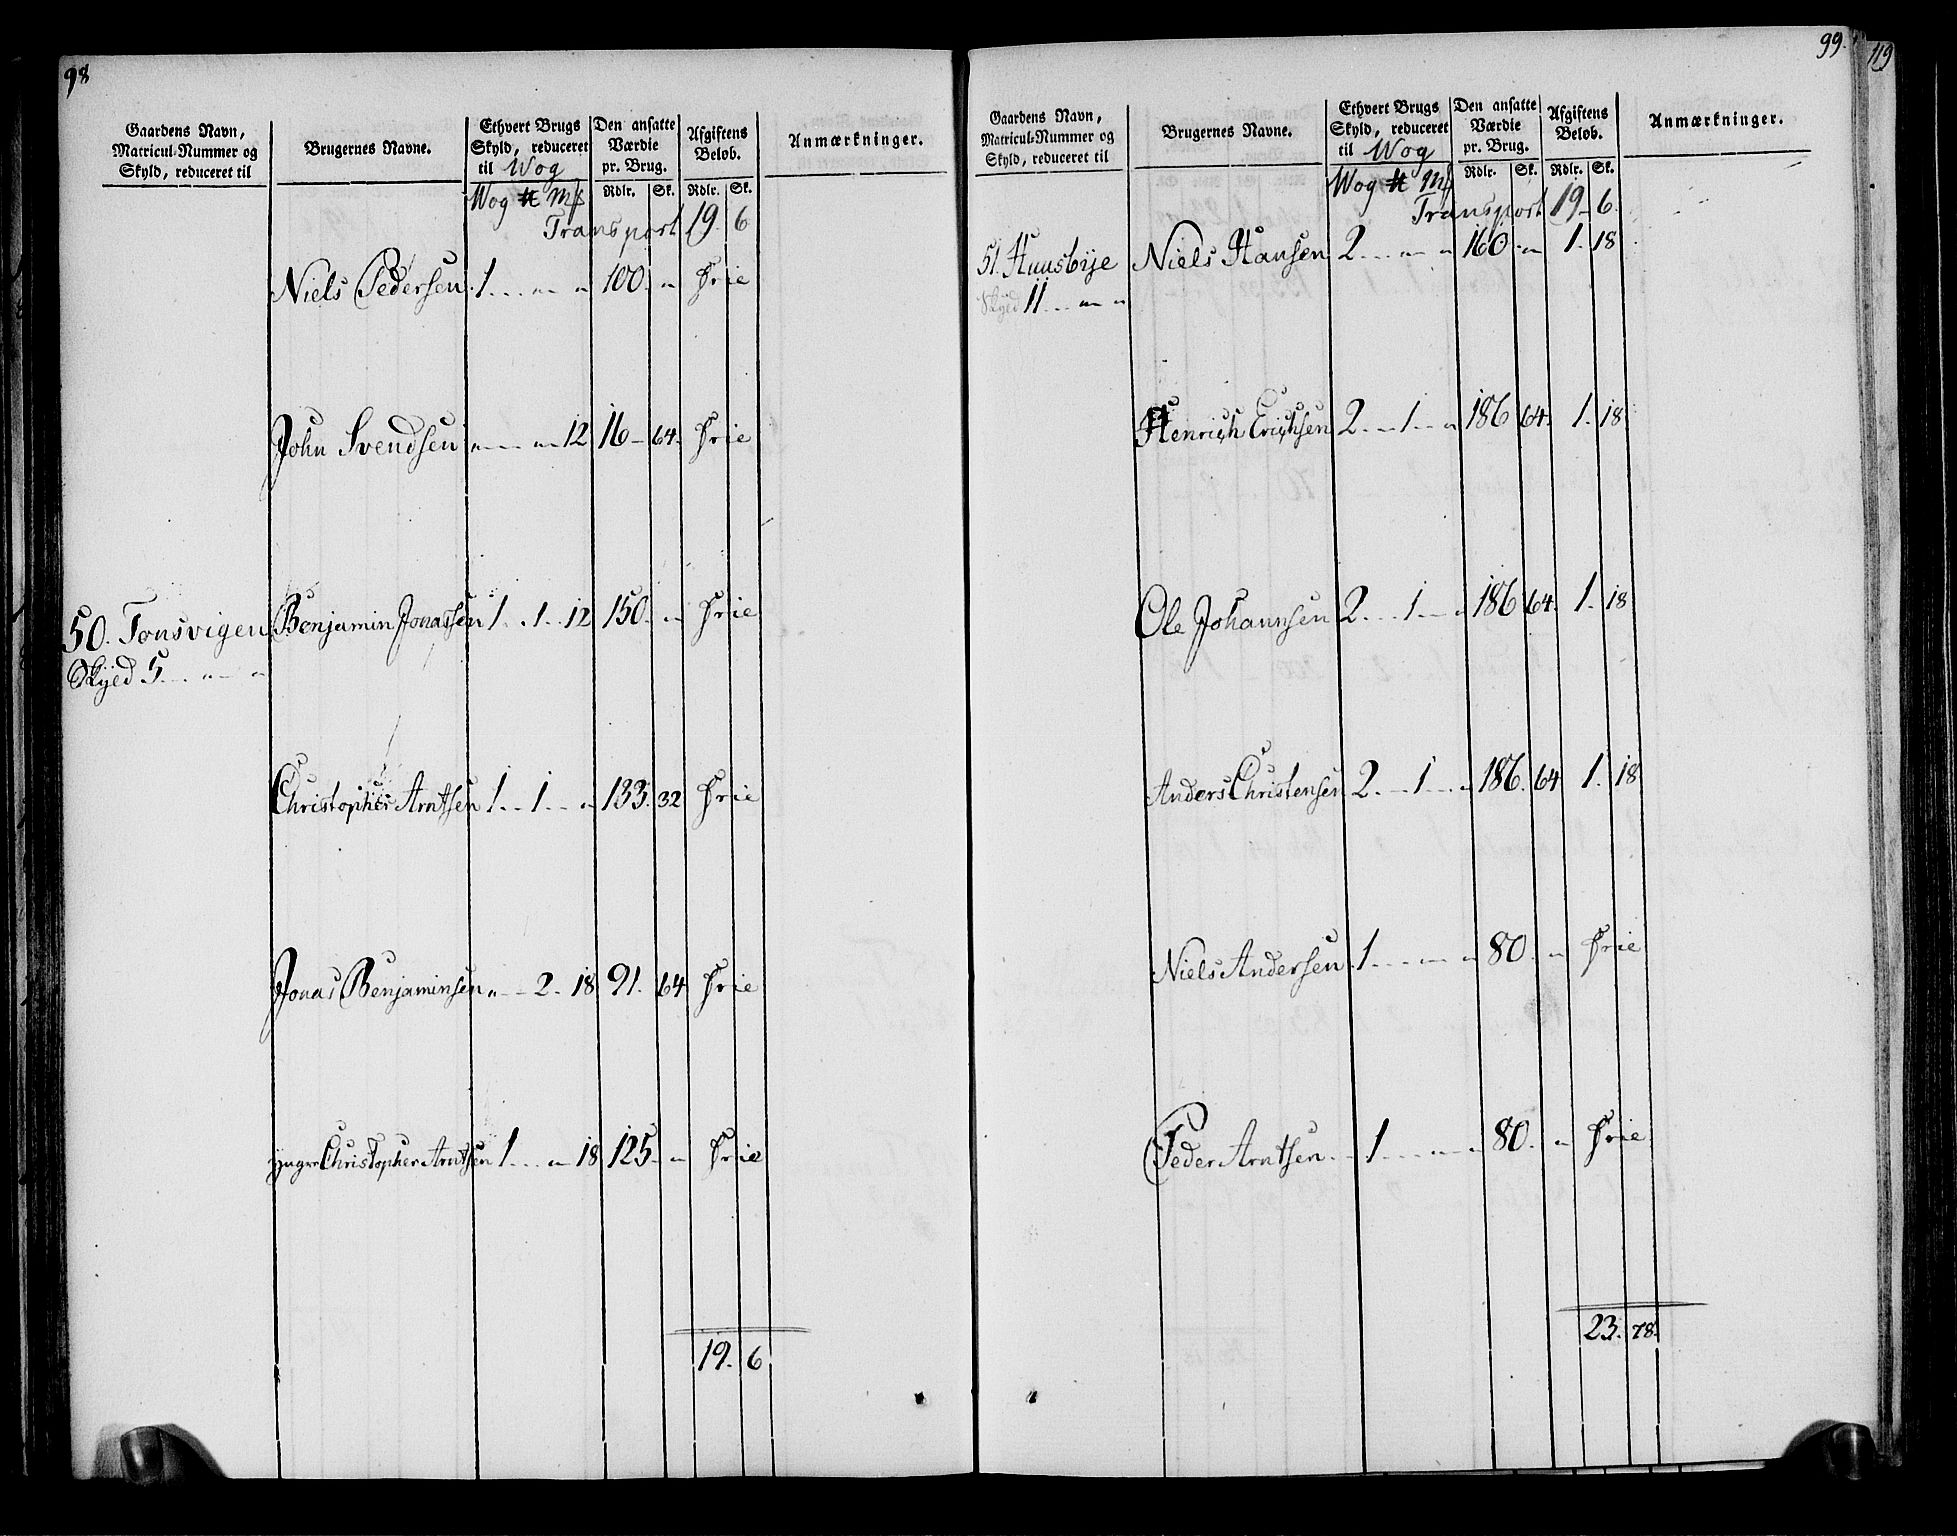 98
Gaardens Navn, Matricul-Nummer og Skyld, reduceret til
Brugernes Navne.
Ethvert Brugs Skyld, reduceret til Wog
Den ansatte Værdie pr. Brug.
Afgiftens Beløb.
Anmærkninger.
Wog ℔ Mk Rdlr. Sk. Rdlr. Sk.
Transport 19. 6
Niels Pedersen 1 . . . „ „ 100. „ Frie
John Svendsen „ — „ 12 16 — 64. Frie
50. Tonsvigen Benjamin Jonassen 1 . . 1 . . 12 150. „ Frie
Skyld 5 . . . „ — „
Christopher Arntsen 1 . . 1 . . „ 133. 32 Frie
Jonas Benjaminsen „ — 2. 18 91. 64 Frie
yngre Christopher Arntsen 1 . . . „ 18 125. „ Frie
19. 6
99.
119
Gaardens Navn, Matricul-Nummer og Skyld, reduceret til
Brugernes Navne.
Ethvert Brugs Skyld, reduceret til Wog
Den ansatte Værdie pr. Brug.
Afgiftens Beløb.
Anmærkninger.
Wog ℔ Mk Rdlr. Sk. Rdlr. Sk.
Transport 19 — 6.
51. Huusbye Niels Hansen 2 . . . „ „ 160. „ 1. 18
Skyld 11 . . . „ „
Henrich Erichsen 2 . . 1 . . „ 186 64. 1. 18
Ole Johannsen 2 . . 1 . . „ 186 64. 1. 18
Anders Christensen 2 . . 1 . . „ 186. 64 1. 18
Niels Andersen 1 . . . „ „ 80. „ Frie
Peder Arntsen 1 . . . „ „ 80. „ Frie
23. 78.